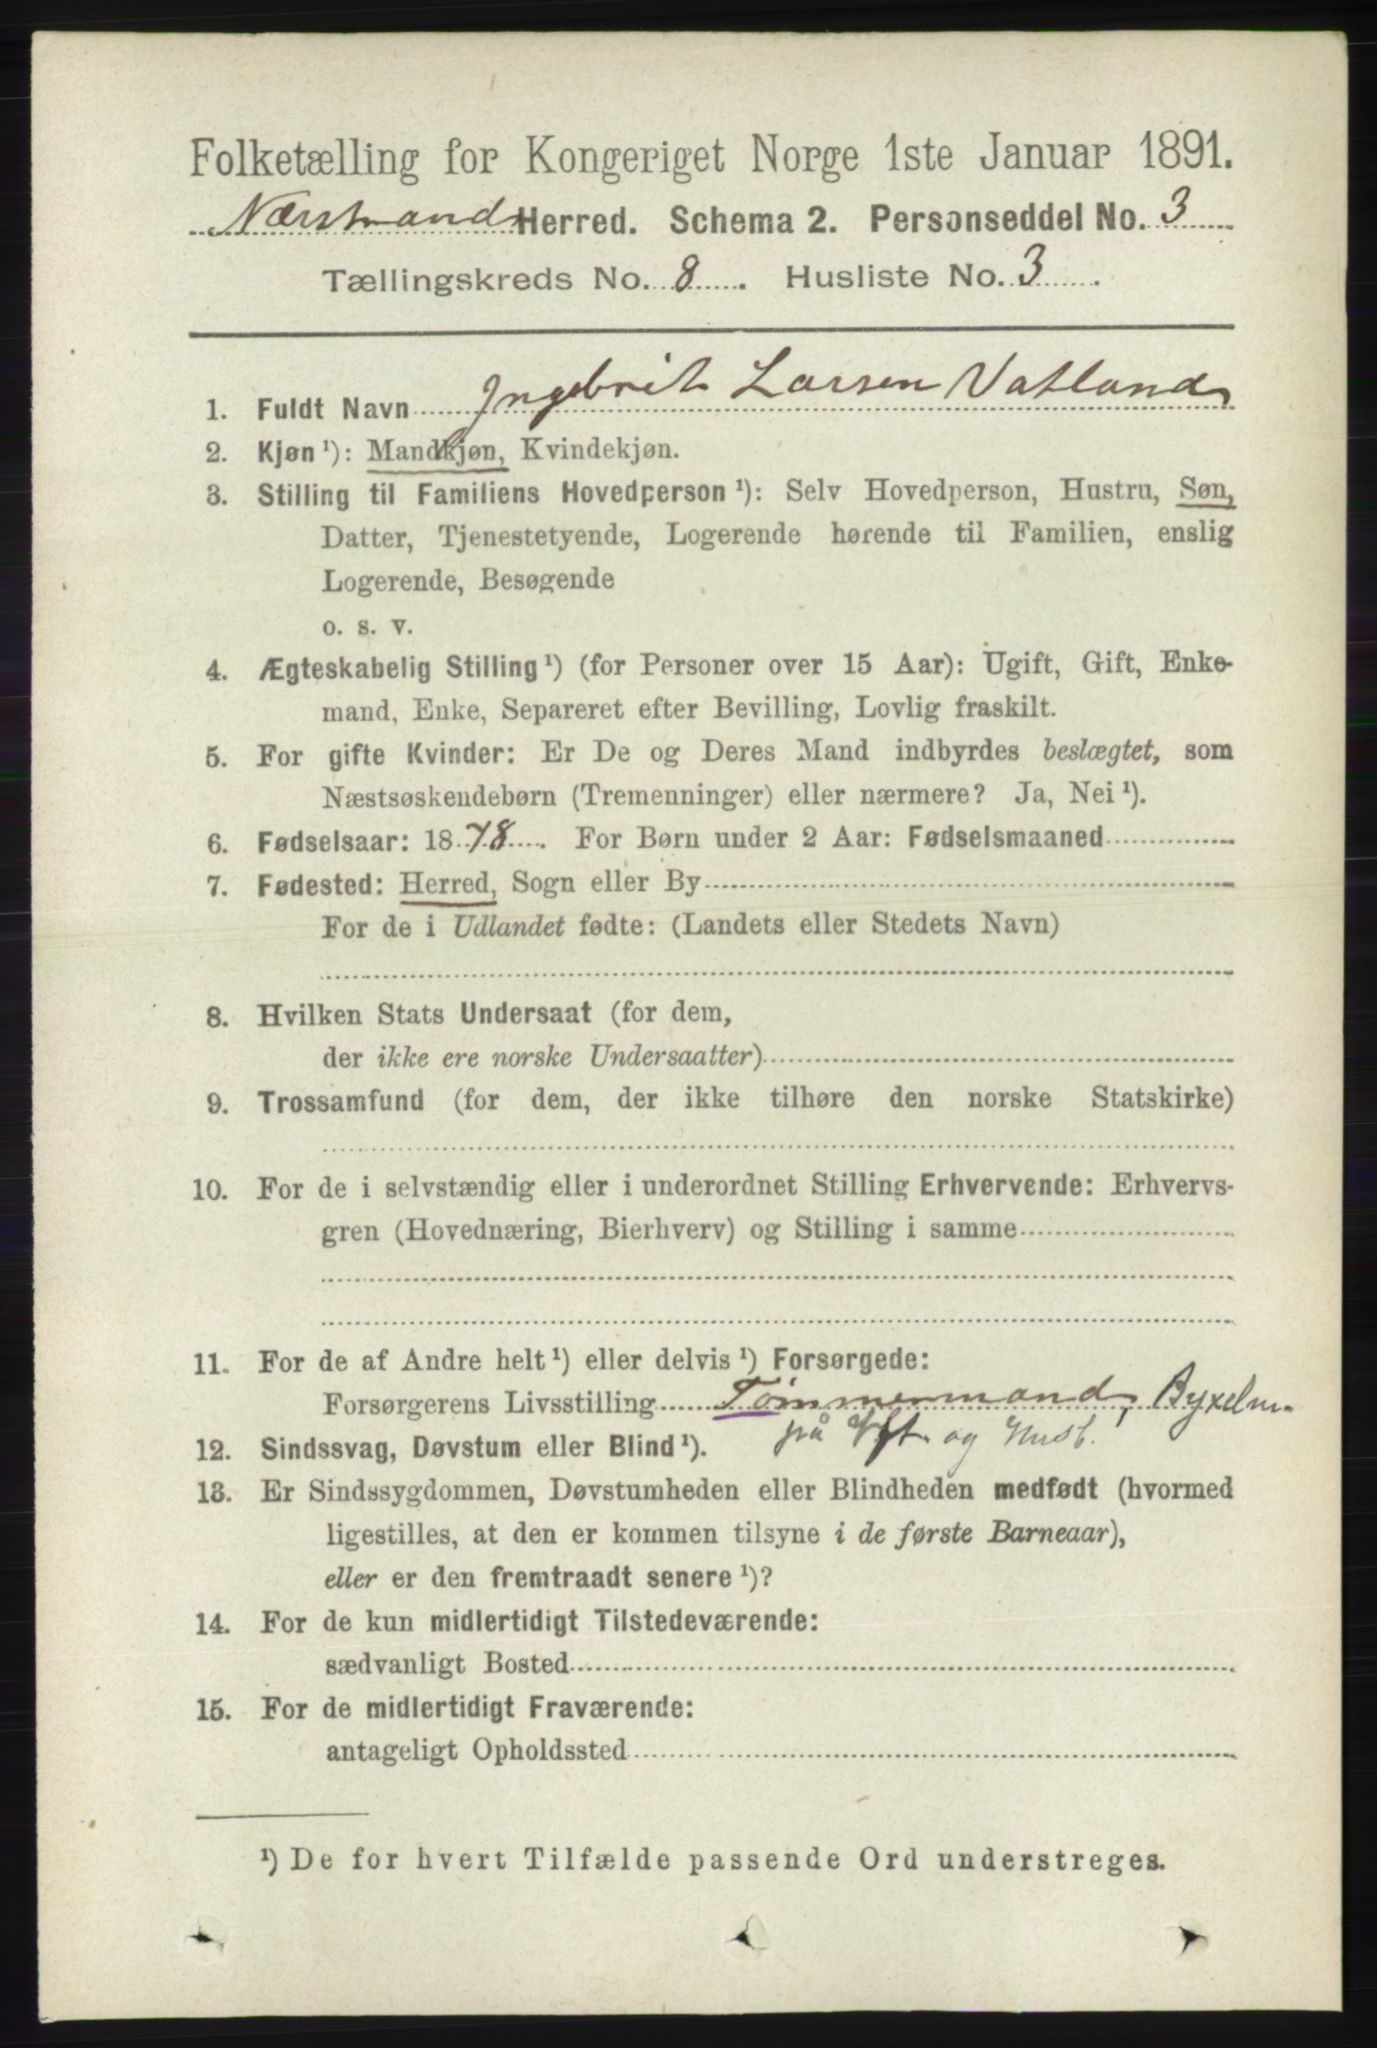 Folketælling for Kongeriget Norge 1ste Januar 1891.
Nærstrand Herred. Schema 2. Personseddel No. 3
Tællingskreds No. 8. Husliste No. 3.
1. Fuldt Navn Ingebrit Larsen Vatland
2. Kjøn ¹): Mandkjøn, Kvindekjøn.
3. Stilling til Familiens Hovedperson ¹): Selv Hovedperson, Hustru, Søn,
Datter, Tjenestetyende, Logerende hørende til Familien, enslig
Logerende, Besøgende
o. s. v.
4. Ægteskabelig Stilling ¹) (for Personer over 15 Aar): Ugift, Gift, Enke-
mand, Enke, Separeret efter Bevilling, Lovlig fraskilt.
5. For gifte Kvinder: Er De og Deres Mand indbyrdes beslægtet, som
Næstsøskendebørn (Tremenninger) eller nærmere? Ja, Nei ¹).
6. Fødselsaar: 1878. For Børn under 2 Aar: Fødselsmaaned
7. Fødested: Herred, Sogn eller By
For de i Udlandet fødte: (Landets eller Stedets Navn)
8. Hvilken Stats Undersaat (for dem,
der ikke ere norske Undersaatter)
9. Trossamfund (for dem, der ikke tilhøre den norske Statskirke)
10. For de i selvstændig eller i underordnet Stilling Erhvervende: Erhvervs-
gren (Hovednæring, Bierhverv) og Stilling i samme
11. For de af Andre helt ¹) eller delvis ¹) Forsørgede:
Forsørgerens Livsstilling Tømmermand,
på og Husb.
12. Sindssvag, Døvstum eller Blind ¹).
13. Er Sindssygdommen, Døvstumheden eller Blindheden medfødt (hvormed
ligestilles, at den er kommen tilsyne i de første Barneaar),
eller er den fremtraadt senere ¹)?
14. For de kun midlertidigt Tilstedeværende:
sædvanligt Bosted
15. For de midlertidigt Fraværende:
antageligt Opholdssted
¹) De for hvert Tilfælde passende Ord understreges.